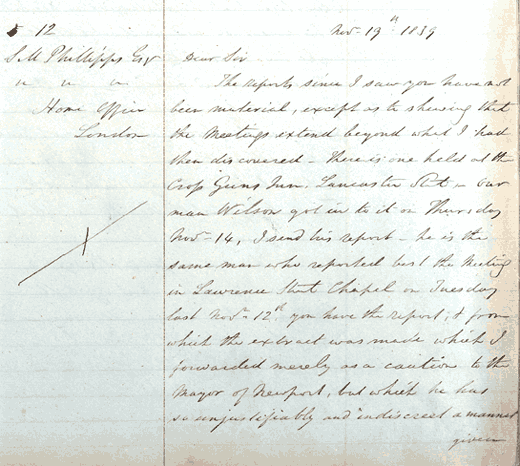 5 12
Novr 19th 1839
S M Phillipps Esqr
" " "
Home Office
London
Dear Sir
The reports since I saw you have not
been material, except as to shewing that
the Meetings extend beyond what I had
then discovered - There is one held at the
Cross Guns Inn. Lancaster Strt - our
man Wilson got in to it on Thursday
Novr 14, I send his report - he is the
same man who reported best the Meeting
in Lawrence Street Chapel on Tuesday
last Novr 12th you have the report, & from
which the extract was made which I
forwarded merely as a caution to the
Mayor of Newport, but which he has
so unjustifiably and indiscreet a manner
given